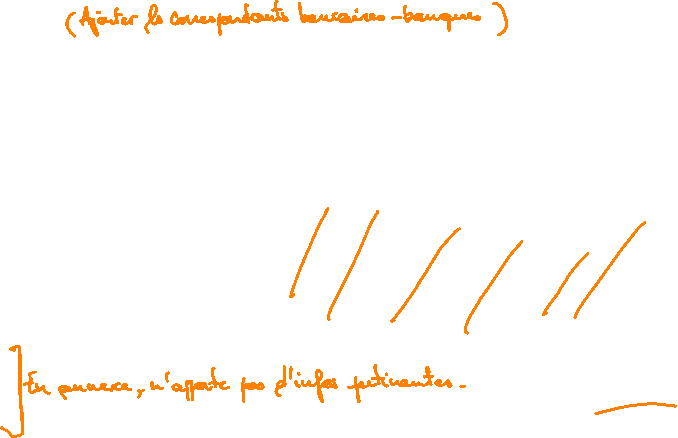 (Ajouter les correspondants bancaires-banques)
En annexe, n'apporte pas d'infos pertinentes.